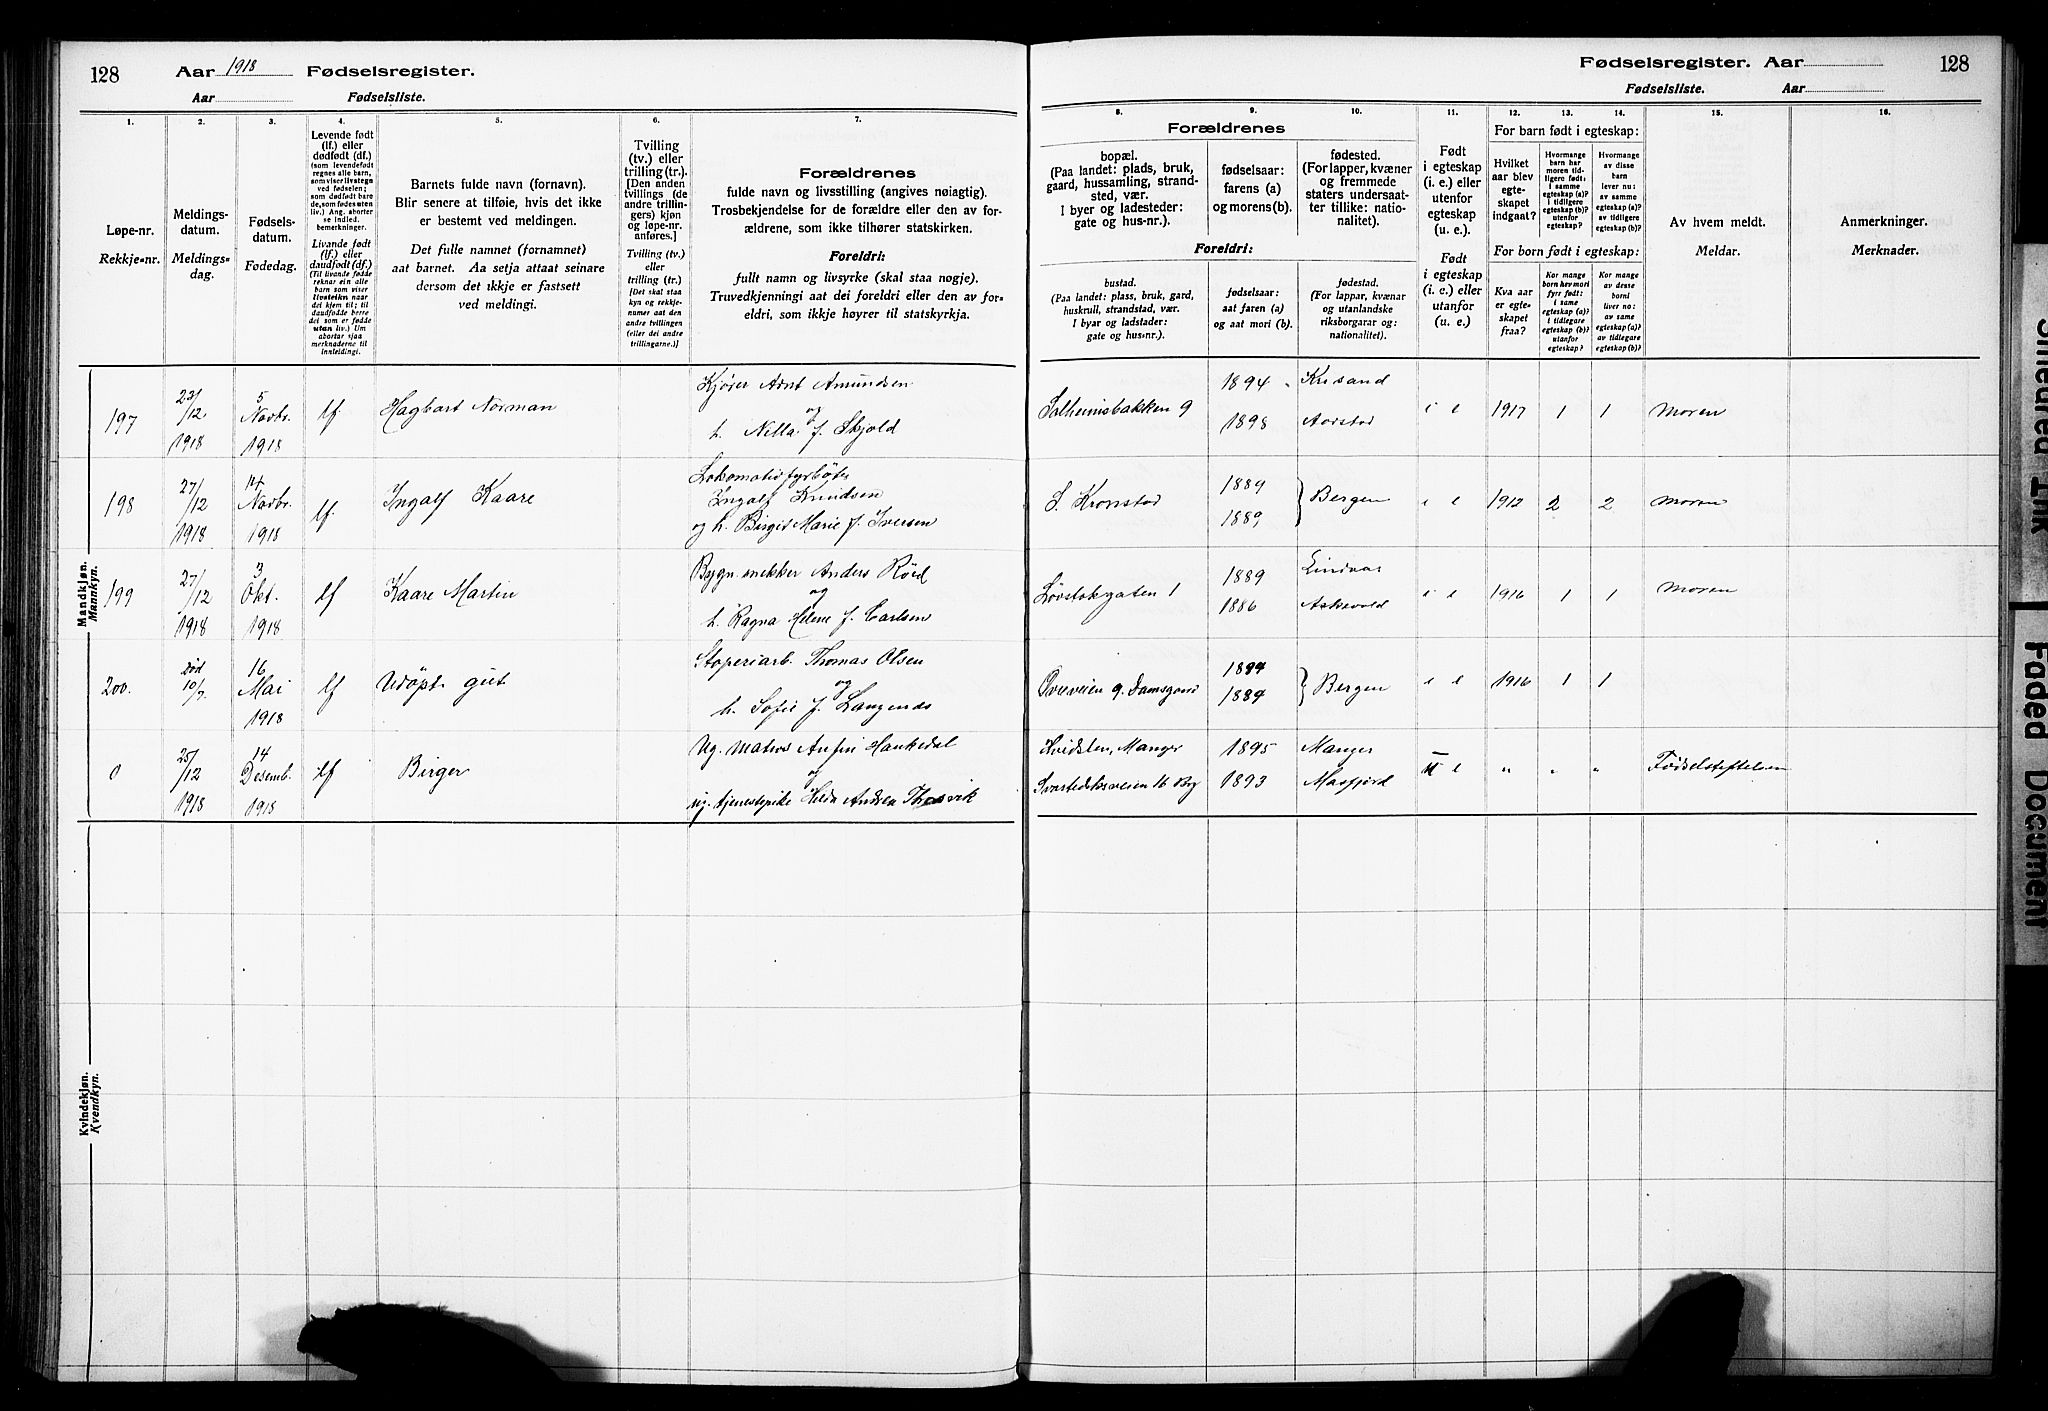 128 Aar 1918 Fødselsregister.
Aar Fødselsliste.
1. 2. 3. 4. 5. 6. 7.
Løpe-nr.
Rekkje-nr.
Meldings-
datum.
Meldings-
dag.
Fødsels-
datum.
Fødedag.
Levende født
(lf.) eller
dødfødt (df.)
(som levendefødt
regnes alle barn,
som viser livstegn
ved fødselen;
som dødfødt bare
de, som fødes uten
liv.) Ang. aborter
se indled.
bemerkninger.
Livande født
(lf.) eller
daudfødt (df.)
(Til livande fødde
reknar ein alle
barn som viser
livsteikn naar
dei kjem til; til
daudfødde berre
dei som er fødde
utan liv.) Um
abortar sjaa
merknaderne til
innleidingi.
Barnets fulde navn (fornavn).
Blir senere at tilføie, hvis det ikke
er bestemt ved meldingen.
Det fulle namnet (fornamnet)
aat barnet. Aa setja attaat seinare
dersom det ikkje er fastsett
ved meldingi.
Tvilling
(tv.) eller
trilling (tr.).
[Den anden
tvillings (de
andre trillin-
gers) kjøn
og løpe-nr.
anføres.]
Tvilling (tv.)
eller
trilling (tr.)
[Det skal staa
kyn og rekkje-
numer aat den
andre tvillingen
(eller dei andre
trillingarne.)]
Forældrenes
fulde navn og livsstilling (angives nøiagtig).
Trosbekjendelse for de forældre eller den av for-
ældrene, som ikke tilhører statskirken.
Foreldri:
fullt namn og livsyrke (skal staa nøgje).
Truvedkjenningi aat dei foreldri eller den av for-
eldri, som ikkje høyrer til statskyrkja.
Mandkjøn.
Mannkyn.
197
23/12
1918
5
Novbr.
1918
lf.
Hagbart Norman
Kjører Arnt Amundsen
og
h. Nella f. Skjold
198
27/12
1918
14
Novbr.
1918
lf.
Ingolf Kaare
Lokomotivfyrbøter
Ingolf Knudsen
og h. Birgit Marie f. Iversen
199
27/12
1918
3
Okt.
1918
lf
Kaare Martin
Bygn.snekker Anders Röed
og
h. Ragna Helene f. Carlsen
200.
Død
10/7
16
Mai
1918
lf
Udöpt gut
Stoperiarb. Thomas Olsen
og
h. Sofie f. Langenes
0
25/12
1918
14
Desemb.
1918
lf
Birger
Ug. matros Anfin Haukedal
og
ug. tjenestepike Hilda Andrea
Kvindekjøn.
Kvendkyn.
Fødselsregister. Aar 128
Fødselsliste. Aar
8. 9. 10. 11. 12. 13. 14. 15. 16.
Forældrenes
bopæl.
(Paa landet: plads, bruk,
gaard, hussamling, strand-
sted, vær.
I byer og ladesteder:
gate og hus-nr.).
fødselsaar:
farens (a)
og morens (b).
fødested.
(For lapper, kvæner
og fremmede
staters undersaat-
ter tillike: natio-
nalitet).
Foreldri:
bustad.
(Paa landet: plass, bruk, gard,
huskrull, strandstad, vær.
I byar og ladstader:
gate og hus-nr.).
fødselsaar:
aat faren (a)
og aat mori (b).
fødestad.
(For lappar, kvænar
og utanlandske
riksborgarar og:
nationalitet).
Født
i egteskap
(i. e.) eller
utenfor
egteskap
(u. e.).
Født
i egteskap
(i. e.) eller
utanfor
(u. e.).
For barn født i egteskap:
Hvilket
aar blev
egte-
skapet
indgaat?
Hvormange
barn har
moren tid-
ligere født:
i samme
egteskap (a)?
i tidligere
egteskap (b)?
utenfor
egteskap?
Hvormange
av disse
barn
lever nu:
av samme
egteskap (a)?
av tidligere
egteskap (b)?
For born født i egteskap:
Kva aar
er egte-
skapet
fraa?
Kor mange
born hev mori
fyrr født:
i same
egteskap (a)?
i tidlegare
egteskap (b)?
utanfor
egteskap?
Kor mange
av desse
borni
liver no:
av same
egteskap (a)?
av tidlegare
egteskap (b)?
Av hvem meldt.
Meldar.
Anmerkninger.
Merknader.
Solheimsbakken 9
1894
1898
Krisand
Aarstad
i e 1917 1 1 moren
S. Kronstad
1889
1889
Bergen
i e 1912 2 2 moren
Løvstakgaten 1
1889
1886
Lindaas
Askevold
i e 1916 1 1 moren
Øvreveien 9. Damsgaard
1894
1884
Bergen
i e 1916 1 1
Hvidsten, Manger
Svartediksveien 16 Bg
1895
1893
Manger
Masfjord
u e " " " Fødselstiftelsen
Smeared Ink
Faded Document